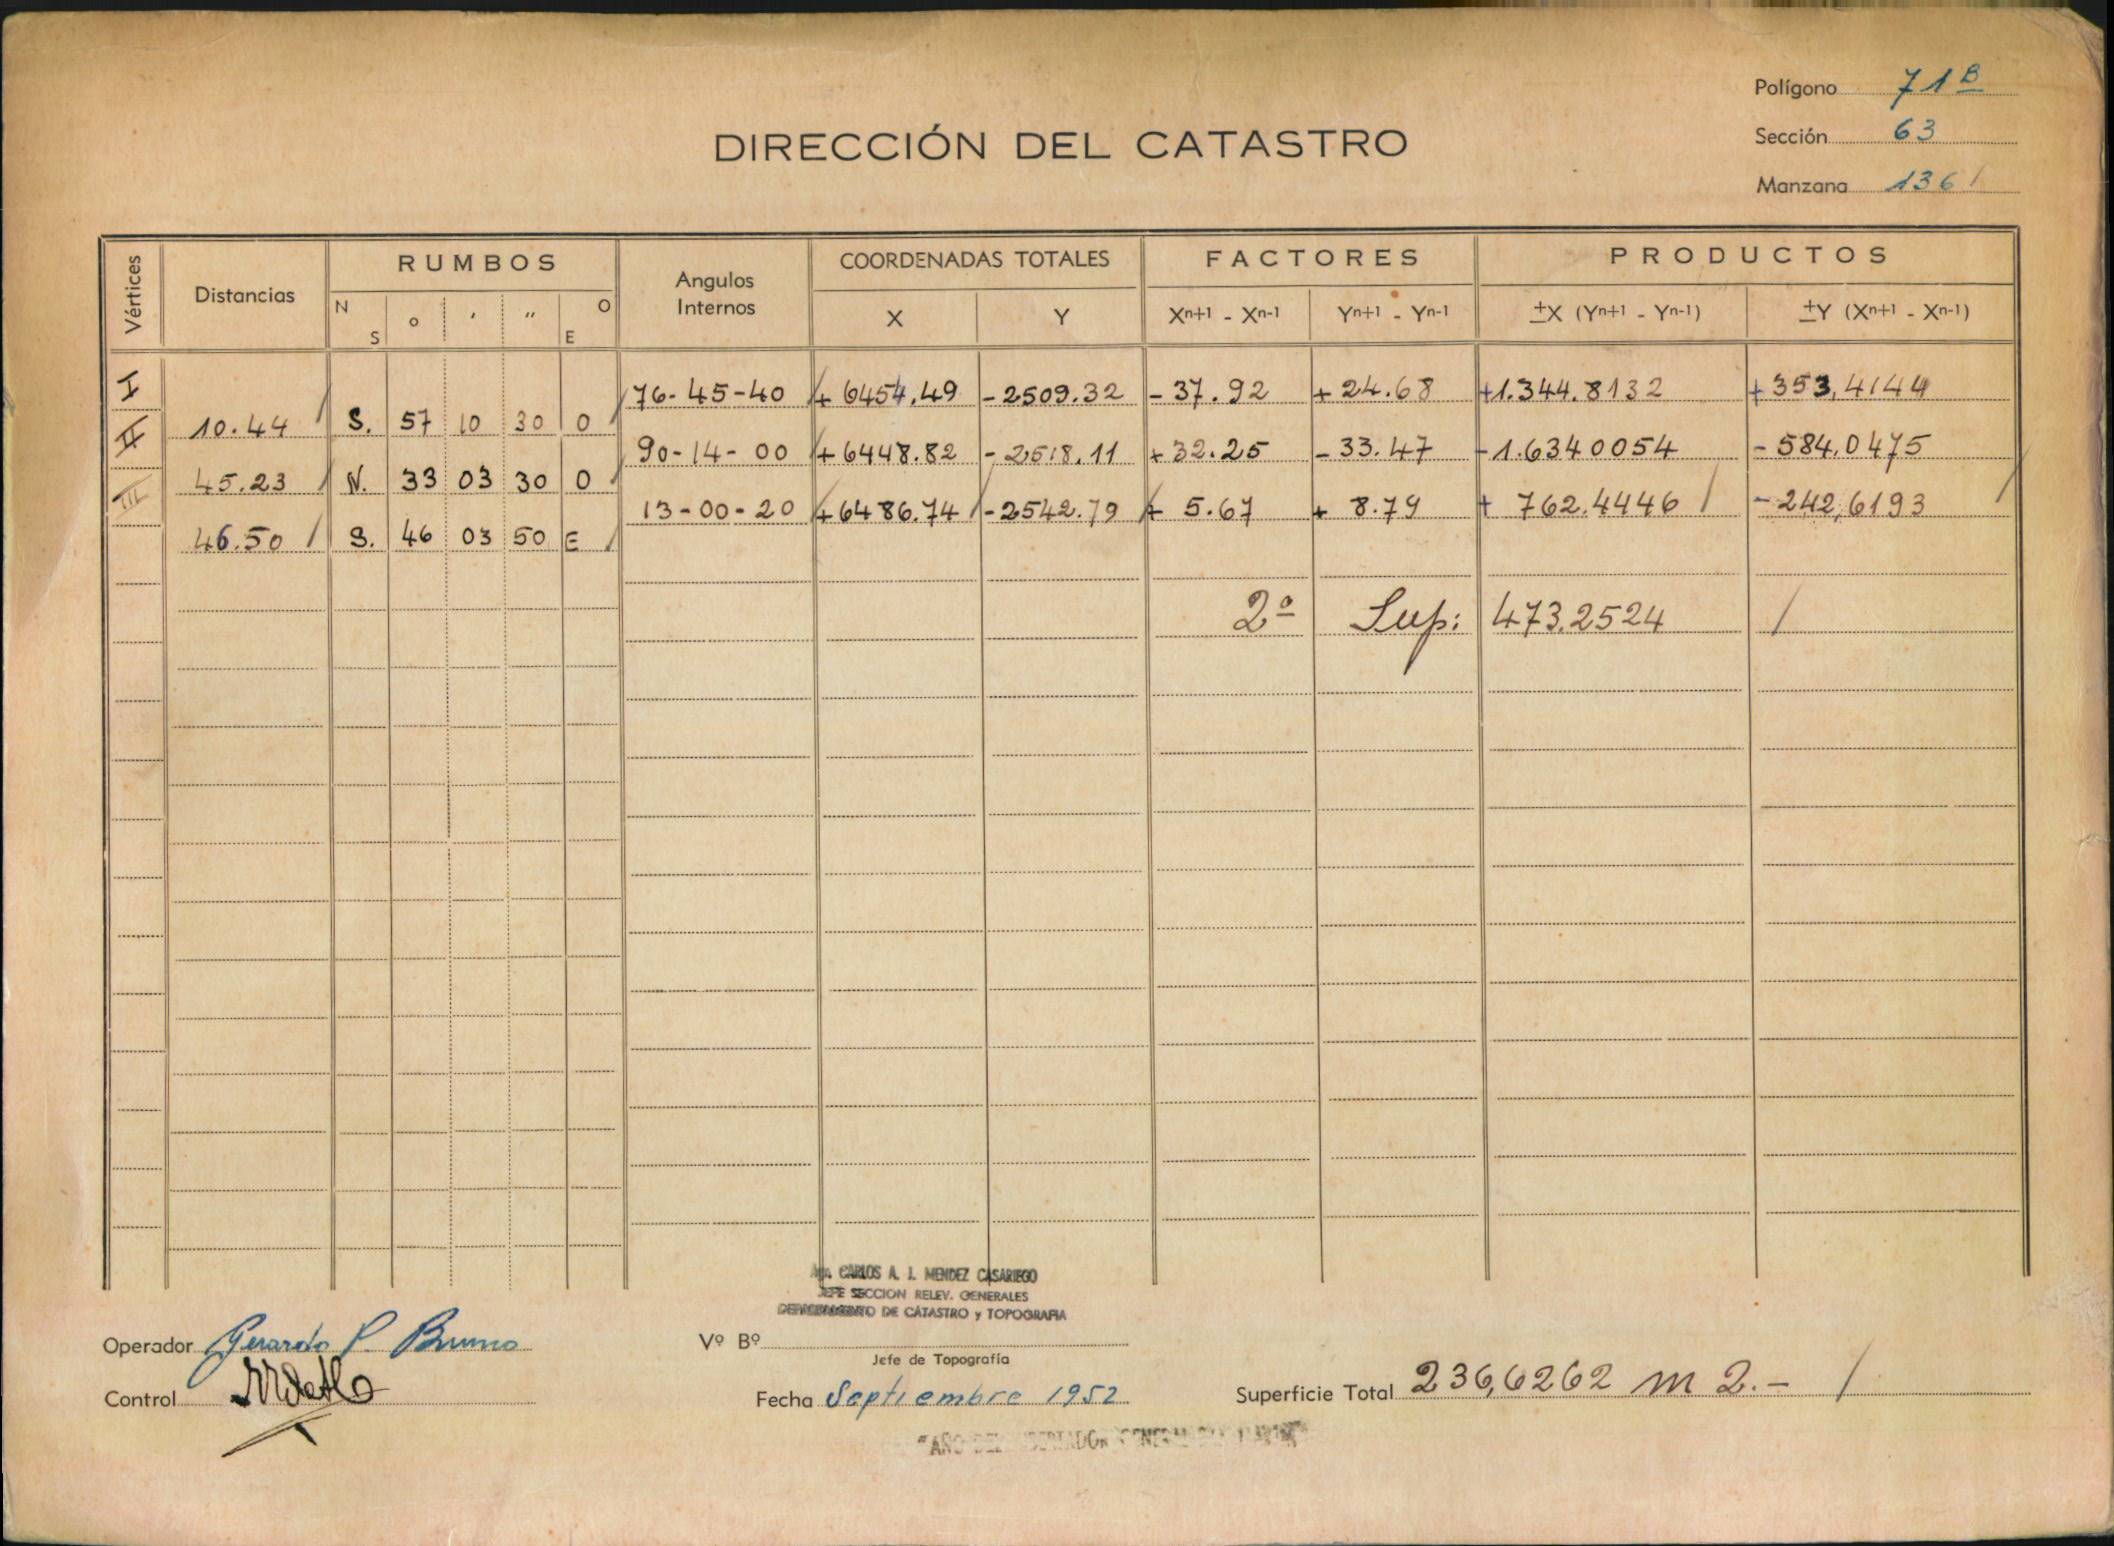 Polígono 71 B
DIRECCIÓN DEL CATASTRO
Sección 63
Manzana 136
Vértices Distancias RUMBOS Angulos Internos COORDENADAS TOTALES FACTORES PRODUCTOS
N S o ' " O E X Y Xn+1 - Xn-1 Yn+1 - Yn-1 ±X (Yn+1 - Yn-1) ±Y (Xn+1 - Xn-1)
I 76-45-40 + 6454.49 - 2509.32 - 37.92 + 24.68 +1.344.8132 + 353,4144
10.44 S. 57 10 30 O
II 90-14-00 + 6448.82 - 2518.11 + 32.25 - 33.47 -1.634.0054 - 584,0475
45.23 N. 33 03 30 O
III 13-00-20 + 6486.74 - 2542.79 + 5.67 + 8.79 + 762.4446 - 242,6193
46.50 S. 46 03 50 E
2º Sup: 473.2524
CARLOS A. J. MENDEZ CASARIEGO
JEFE SECCION RELEV. GENERALES
DEPARTAMENTO DE CATASTRO y TOPOGRAFIA
Operador Gerardo P. Bruno Vº Bº
Jefe de Topografía
Control Fecha Septiembre 1952 Superficie Total 236,6262 m 2.-
"AÑO DEL LIBERTADOR GENERAL SAN MARTIN"